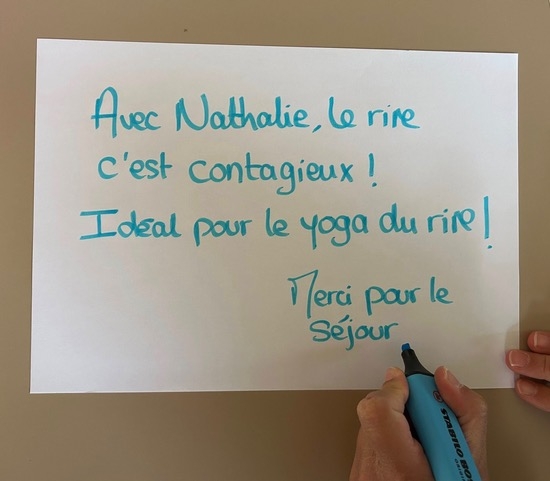 Avec Nathalie, le rire
c'est contagieux !
Idéal pour le yoga du rire !
Merci pour le
séjour
STABILO BO